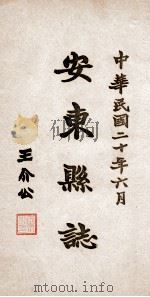 中華民國二十年六月
安東縣誌
王介公
www.toutu.info